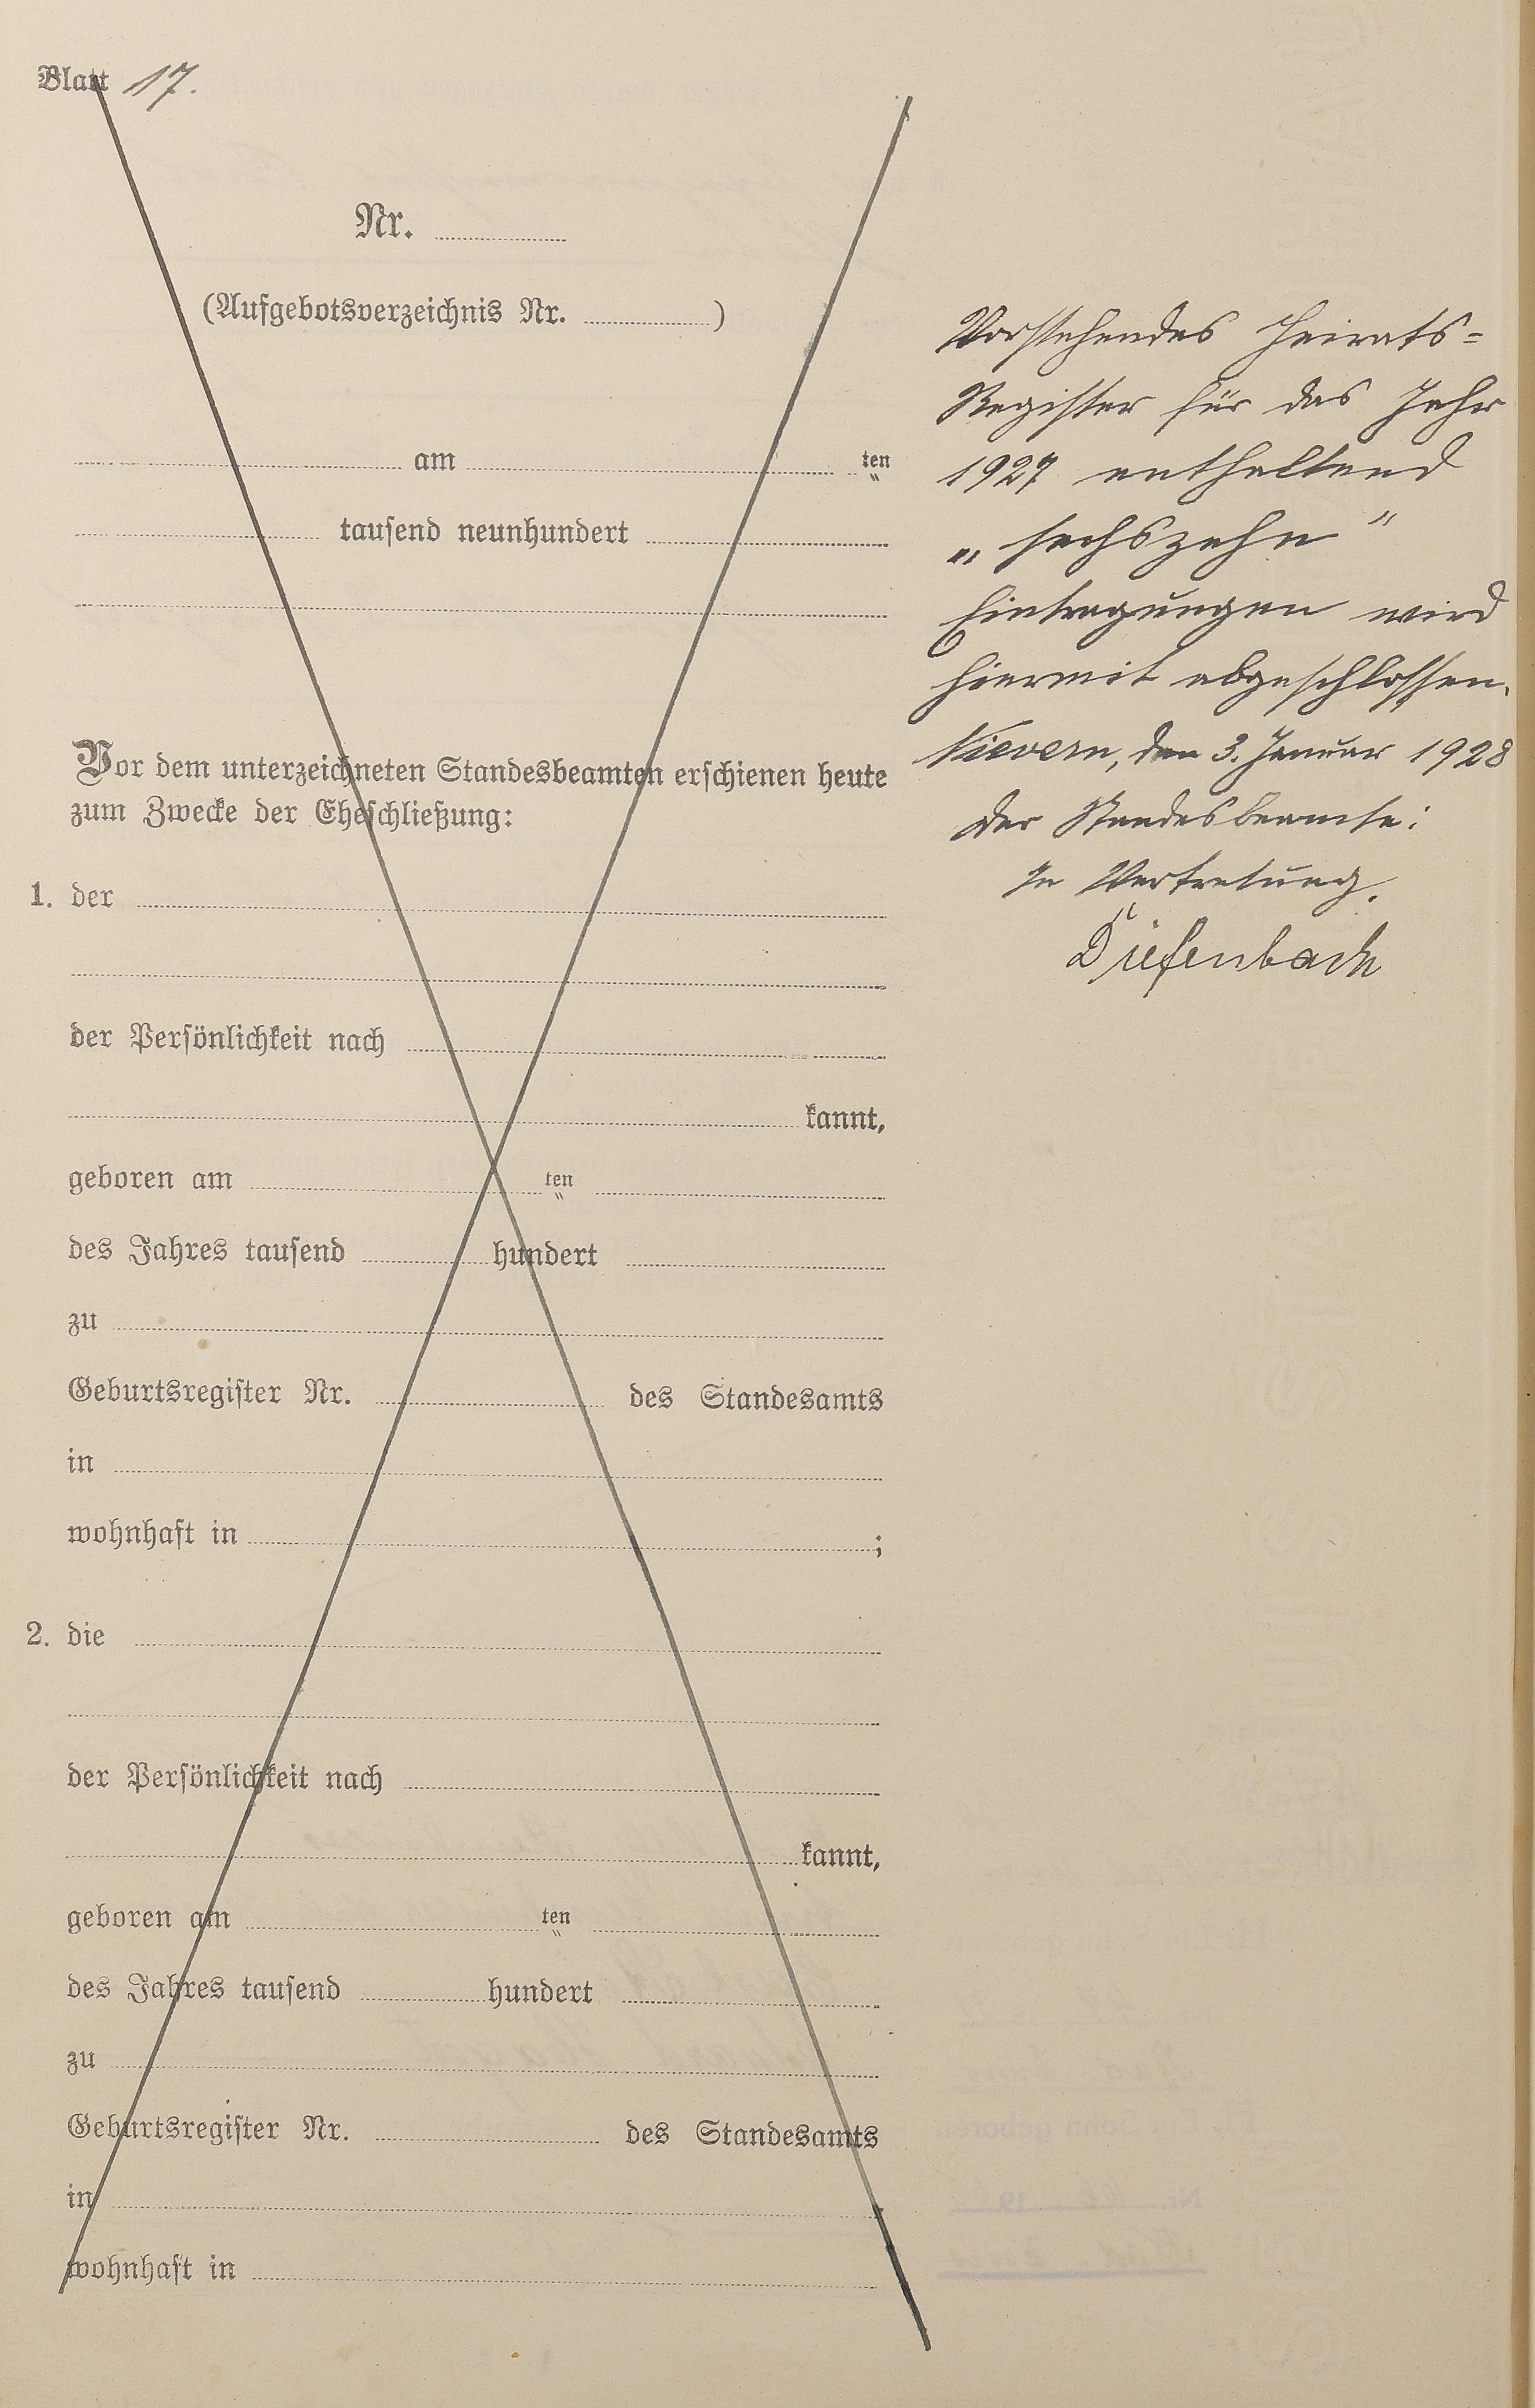 Blatt 17.
Nr.
(Aufgebotsverzeichnis Nr. )
am ten
tausend neunhundert
Vor dem unterzeichneten Standesbeamten erschienen heute
zum Zwecke der Eheschließung:
1. der
der Persönlichkeit nach
kannt,
geboren am ten
des Jahres tausend hundert
zu
Geburtsregister Nr. des Standesamts
in
wohnhaft in ;
2. die
der Persönlichkeit nach
kannt,
geboren am ten
des Jahres tausend hundert
zu
Geburtsregister Nr. des Standesamts
in ,
wohnhaft in
Vorstehendes Heirats=
Register für das Jahr
1927 enthaltend
„ sechszehn "
Eintragungen wird
hiermit abgeschlossen.
Nievern, den 3. Januar 1928
Der Standesbeamte:
In Vertretung.
Diefenbach